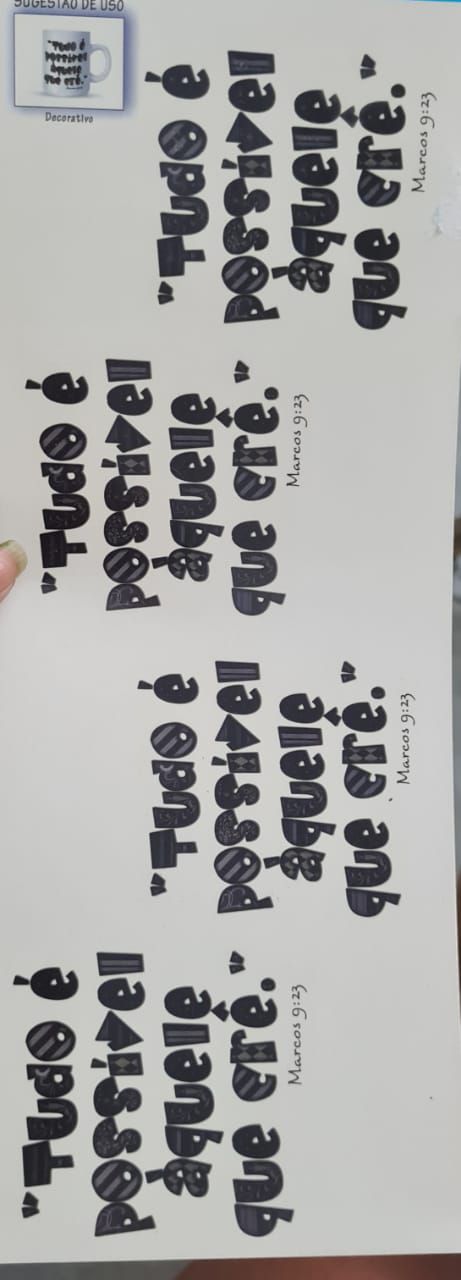 SUGESTÃO DE USO
"Tudo é
possível
àquele
que crê."
Decorativo
"Tudo é
possível
àquele
que crê."
Marcos 9:23
"Tudo é
possível
àquele
que crê."
Marcos 9:23
"Tudo é
possível
àquele
que crê."
Marcos 9:23
"Tudo é
possível
àquele
que crê."
Marcos 9:23